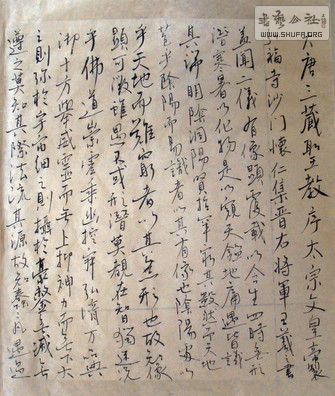 书艺公社
www.shufa.org
大唐三藏聖教序太宗文皇製
福寺沙門懷仁集晉右將軍王羲之書
蓋聞二儀有像顯覆載以含生四時無形
潛寒暑以化物是以窺天鑑地庸愚皆識
其端明陰洞陽賢哲罕窮其數然而天地
苞乎陰陽而易識者以其有像也陰陽處以
乎天地而難窮者以其無形也故知像
顯可徵雖愚不惑形潛莫覩在智猶迷況
乎佛道崇虛乘幽控寂弘濟万品典
御十方舉威靈而無上抑神力而無下大
之則彌於宇宙細之則攝於毫釐無滅無
遵之莫知其際法流其源故知蠢蠢凡愚區